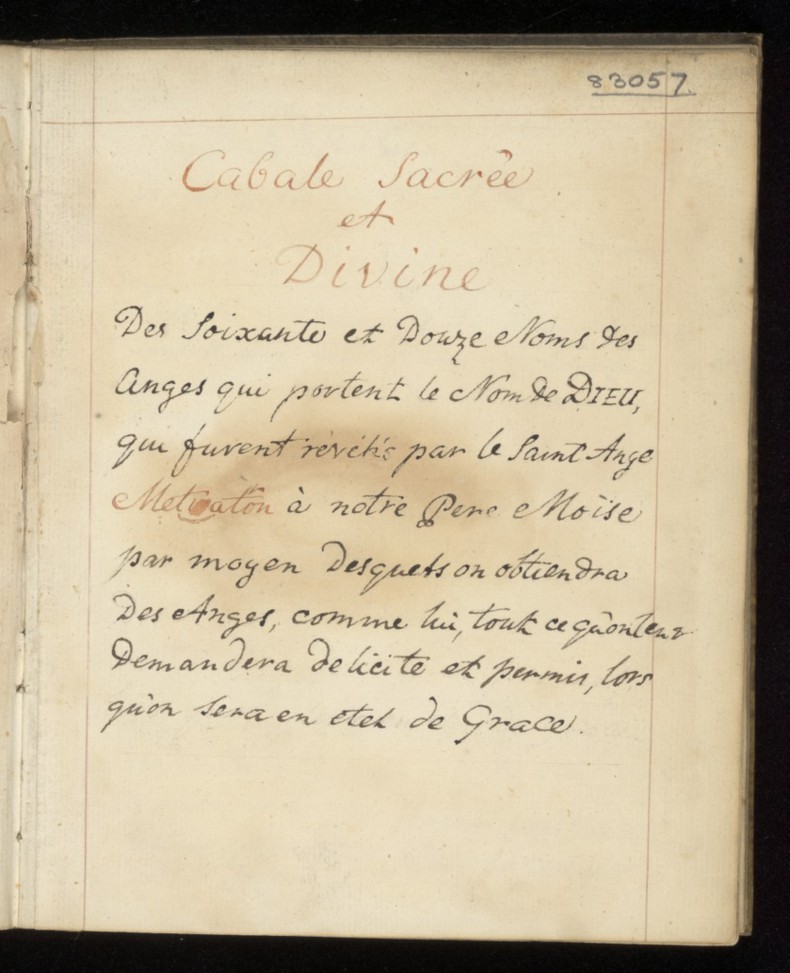 83057
Cabale Sacrée
et
Divine
Des Soixante et Douze Noms des
Anges qui portent le Nom de DIEU,
qui furent révélés par le Saint Ange
Metraton à notre Pere Moïse
par moyen desquels on obtiendra
Des Anges, comme lui, tout ce qu'on leur
Demandera de licite et permis, lors
qu'on sera en etet de Grace.